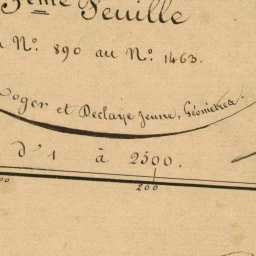 3ème Feuille
N°. 890 au N°. 1463.
oger et Declaye jeune, Géomètres.
D'1 à 2500.
00 200